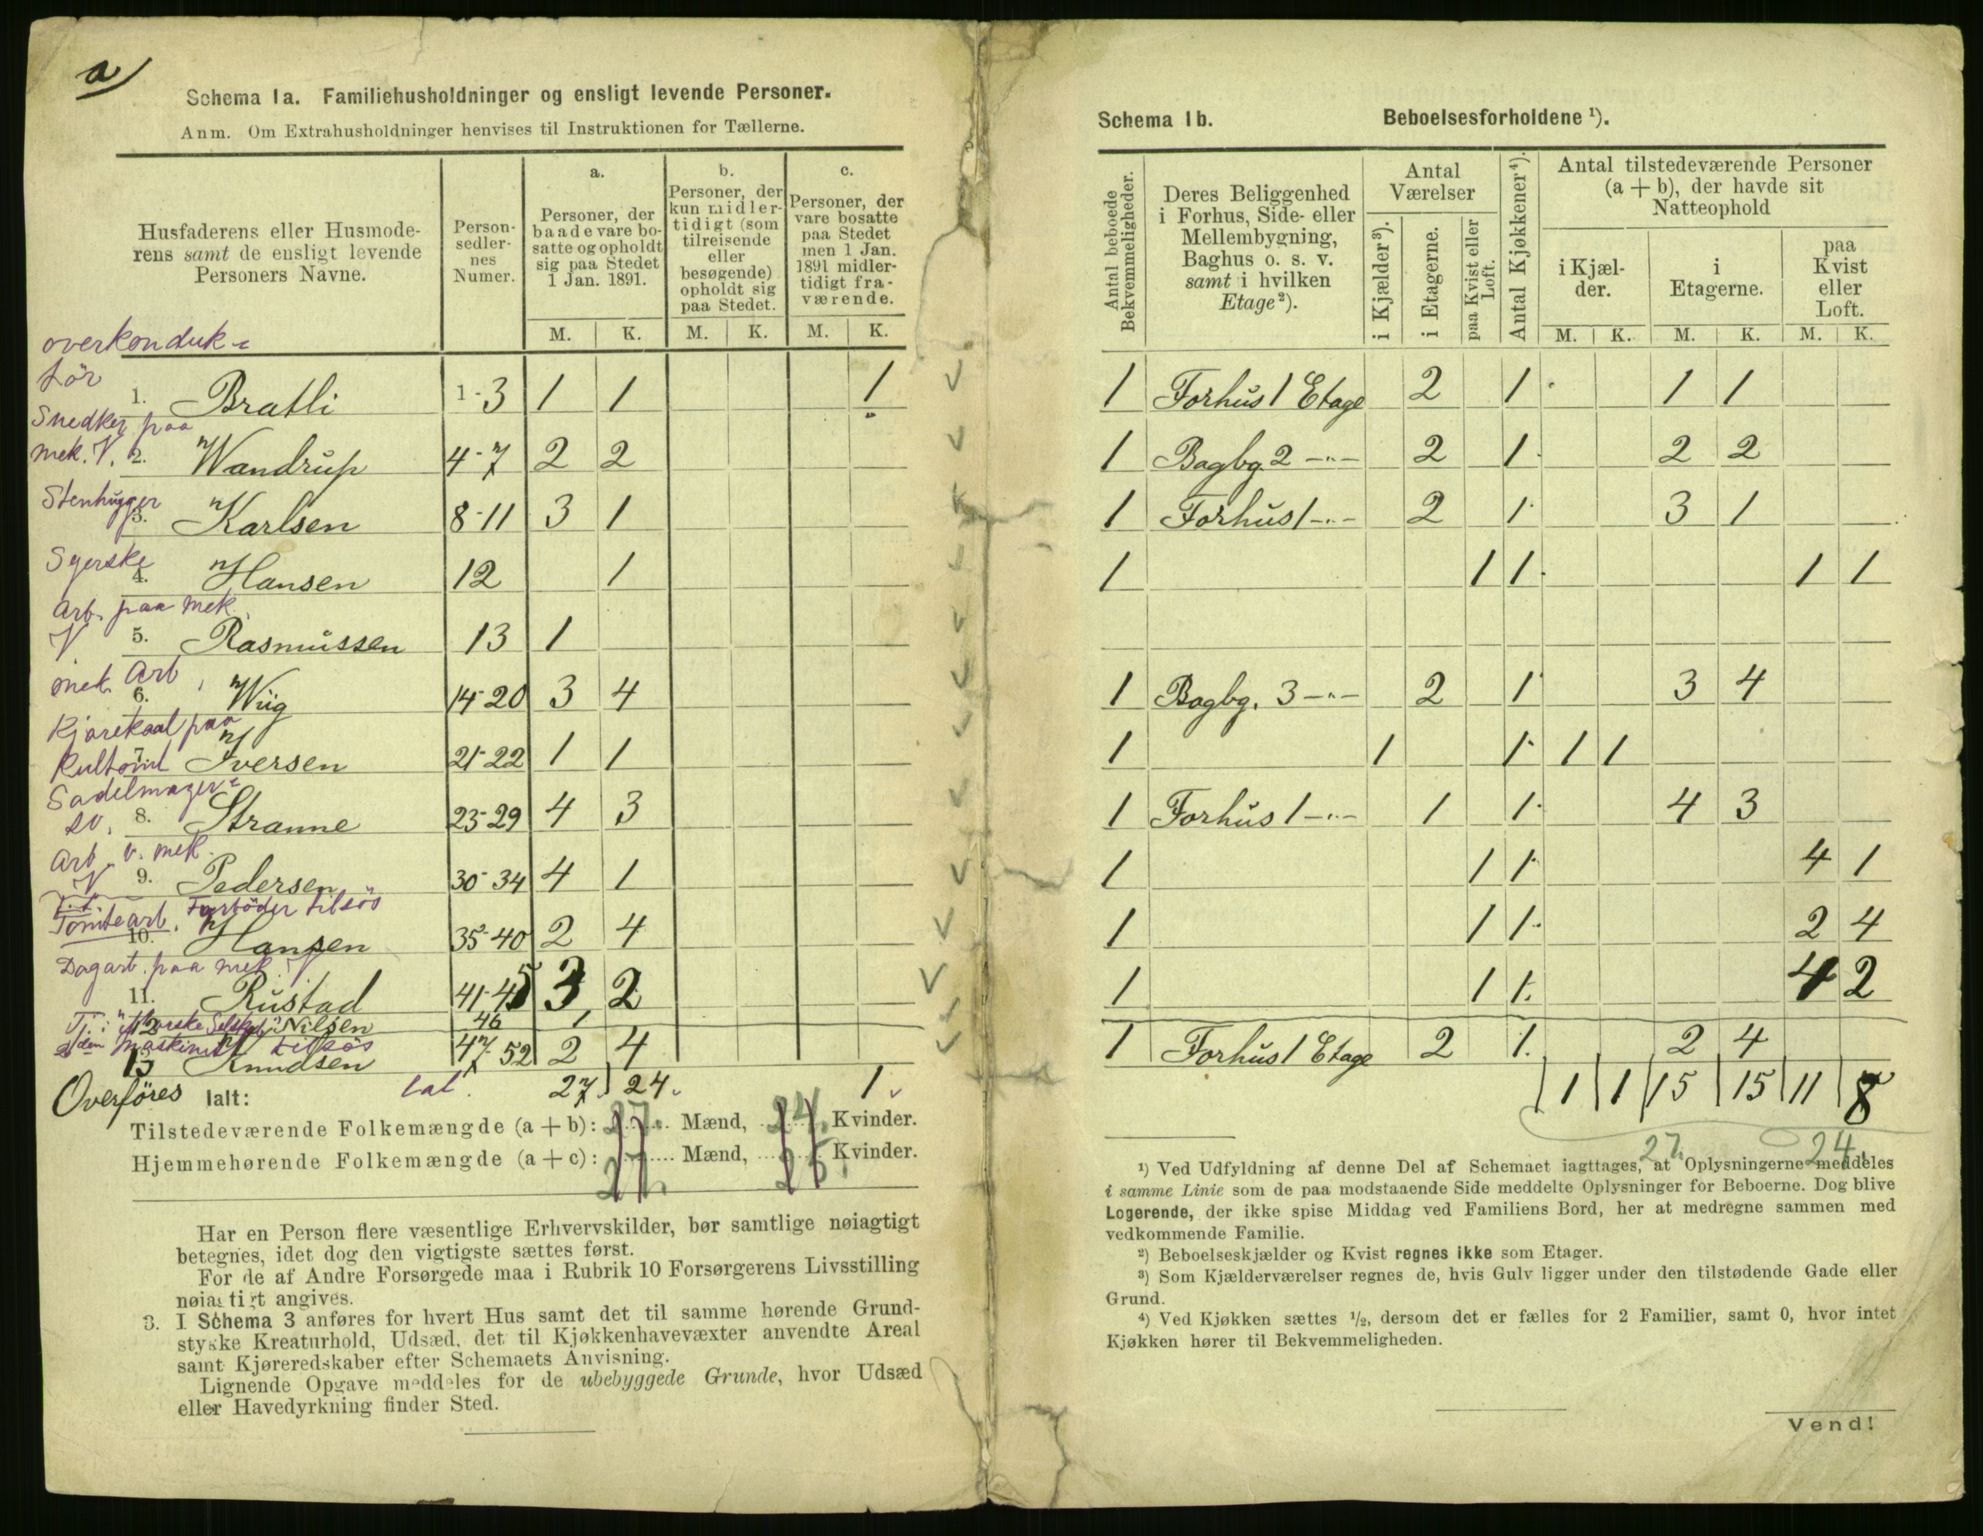 a)
Schema 1a. Familiehusholdninger og ensligt levende Personer.
Anm. Om Extrahusholdninger henvises til Instruktionen for Tællerne.
Husfaderens eller Husmoderens samt de ensligt levende Personers Navne.
Personsedlernes Numer.
a. Personer, der baade vare bosatte og opholdt sig paa Stedet 1 Jan. 1891.
b. Personer, der kun midlertidigt (som tilreisende eller besøgende) opholdt sig paa Stedet.
c. Personer, der vare bosatte paa Stedet men 1 Jan. 1891 midlertidigt fraværende.
M. K. M. K. M. K.
overkonduk-
tör
1. Bratli 1-3 1 1 1
Snedker paa
mek. V. 2. Wandrup 4-7 2 2
Stenhugger
3. Karlsen 8-11 3 1
Syerske
4. Hansen 12 1
Arb. paa mek.
V 5. Rasmussen 13 1
mek. Arb.
6. Wiig 14-20 3 4
7. Iversen 21-22 1 1
Sadelmager-
sv. 8. Stranne 23-29 4 3
Arb. v. mek.
V 9. Pedersen 30-34 4 1
Tomtearb.
10. Hansen 35-40 2 4
Dagarb. paa mek. V
11. Rustad 41-45 3 2
12 Nilsen 46 1
13 Knudsen 47-52 2 4
Overföres Ialt: 27 24 1
Tilstedeværende Folkemængde (a + b): 27. Mænd, 24. Kvinder.
Hjemmehørende Folkemængde (a + c): 27. Mænd, 25. Kvinder.
Har en Person flere væsentlige Erhvervskilder, bør samtlige nøiagtigt
betegnes, idet dog den vigtigste sættes først.
For de af Andre Forsørgede maa i Rubrik 10 Forsørgerens Livsstilling
nøiagtigt angives.
3. I Schema 3 anføres for hvert Hus samt det til samme hørende Grund-
stykke Kreaturhold, Udsæd, det til Kjøkkenhavevæxter anvendte Areal
samt Kjøreredskaber efter Schemaets Anvisning.
Lignende Opgave meddeles for de ubebyggede Grunde, hvor Udsæd
eller Havedyrkning finder Sted.
Schema 1b. Beboelsesforholdene ¹).
Antal beboede Bekvemmeligheder.
Deres Beliggenhed i Forhus, Side- eller Mellembygning, Baghus o. s. v. samt i hvilken Etage²).
Antal Værelser
i Kjælder³).
i Etagerne.
paa Kvist eller Loft.
Antal Kjøkkener⁴).
Antal tilstedeværende Personer (a + b), der havde sit Natteophold
i Kjælder.
i Etagerne.
paa Kvist eller Loft.
M. K. M. K. M. K.
1 Forhus 1 Etage 2 1 1 1
1 Bagbg. 2 -"- 2 1 2 2
1 Forhus 1 -"- 2 1 3 1
1 1 1 1 1
1 Bagbg. 3 -"- 2 1 3 4
1 1 1 1 1
1 Forhus 1 -"- 1 1 4 3
1 1 1 4 1
1 1 1 2 4
1 1 1 4 2
1 Forhus 1 Etage 2 1 2 4
1 1 15 15 11 8
27. 24.
¹) Ved Udfyldning af denne Del af Schemaet iagttages, at Oplysningerne meddeles
i samme Linie som de paa modstaaende Side meddelte Oplysninger for Beboerne. Dog blive
Logerende, der ikke spise Middag ved Familiens Bord, her at medregne sammen med
vedkommende Familie.
²) Beboelseskjælder og Kvist regnes ikke som Etager.
³) Som Kjælderværelser regnes de, hvis Gulv ligger under den tilstødende Gade eller
Grund.
⁴) Ved Kjøkken sættes ½, dersom det er fælles for 2 Familier, samt 0, hvor intet
Kjøkken hører til Bekvemmeligheden.
Vend!